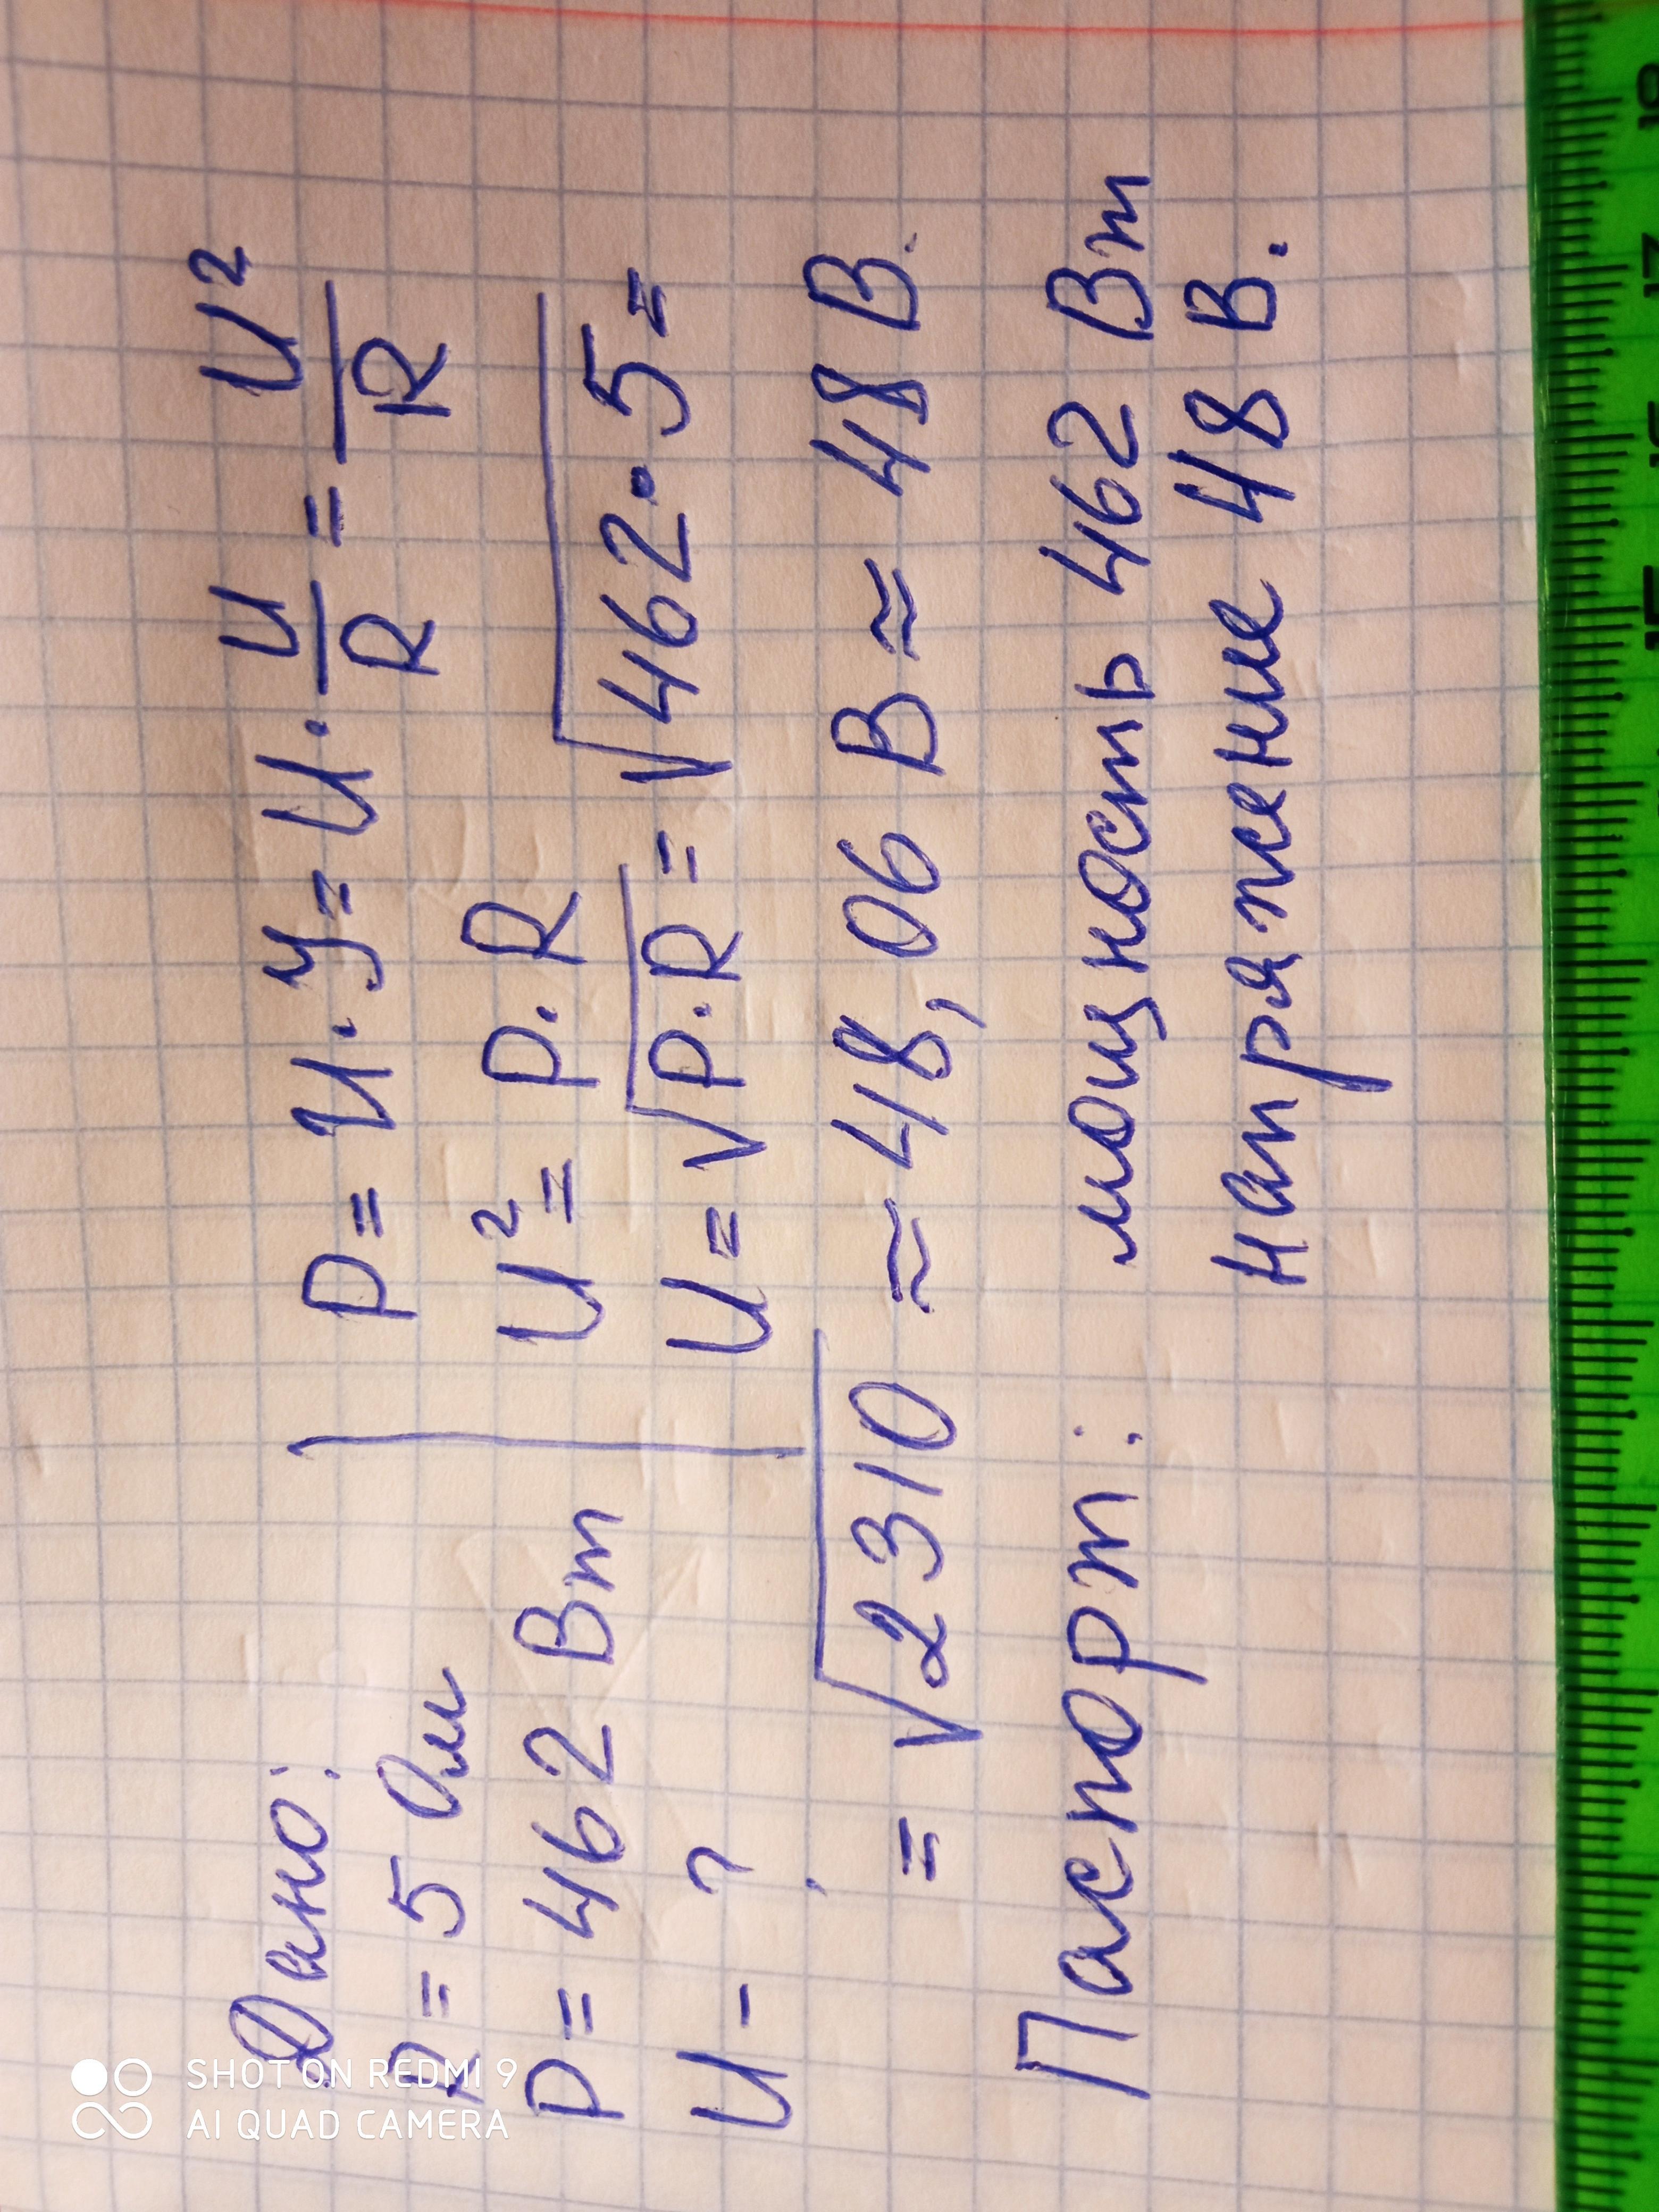 Дано:
R = 5 Ом
P = 462 Вт
U - ?
P = U · У = U · U/R = U²/R
U² = P · R
U = √P·R = √462·5 =
= √2310 ≈ 48,06 В ≈ 48 В.
Паспорт: мощность 462 Вт
напряжение 48 В.
15 16 17 18
SHOT ON REDMI 9
AI QUAD CAMERA